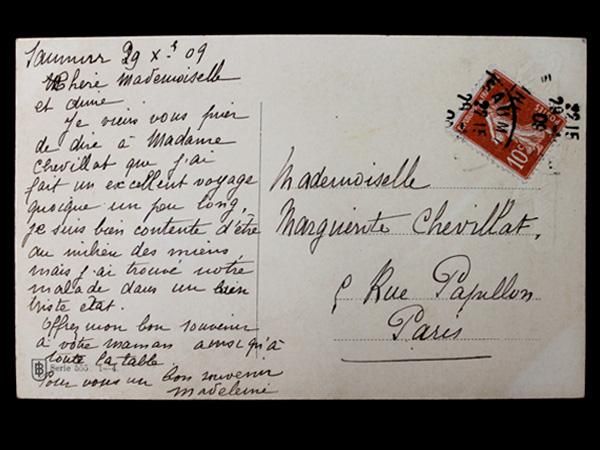 Saumur 29 Xbre 09
Chère Mademoiselle
et amie.
Je viens vous prier
de dire à Madame
Chevillat que j'ai
fait un excellent voyage
quoique un peu long,
je suis bien contente d'être
au milieu des miens,
mais j'ai trouvé notre
malade dans un bien
triste état.
Offrez mon bon souvenir
à votre maman ainsi qu'à
toute la table.
Pour vous un bon souvenir
Madeleine
Serie 555. 1-4.
Mademoiselle
Marguerite Chevillat,
Rue Papillon
Paris
10c
POSTES